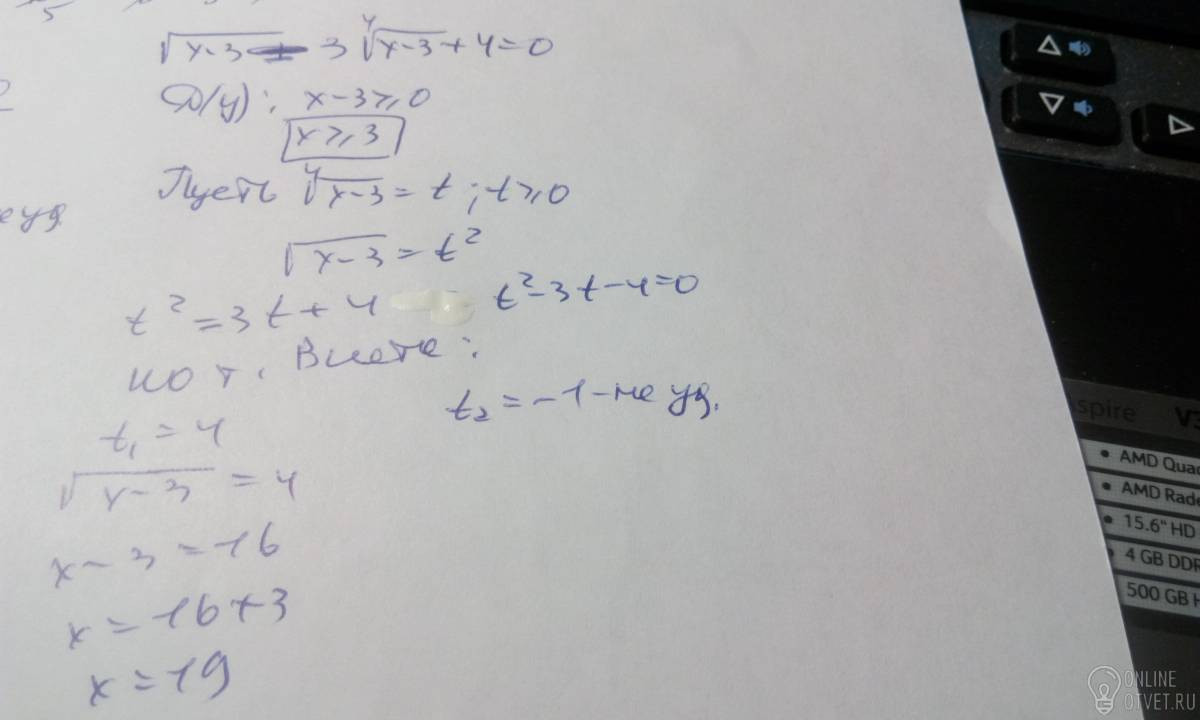 √x-3 = 3 ∜x-3 + 4 = 0
Д/у: x-3 ≥ 0
x ≥ 3
Пусть ∜x-3 = t ; t ≥ 0
√x-3 = t²
t² = 3t + 4 t² - 3t - 4 = 0
по т. Виета:
t₁ = 4 t₂ = -1 - не уд.
√x-3 = 4
x - 3 = 16
x = 16 + 3
x = 19
spire V3
• AMD Quad
• AMD Rade
• 15.6" HD
• 4 GB DDR
500 GB H
ONLINE
OTVET.RU